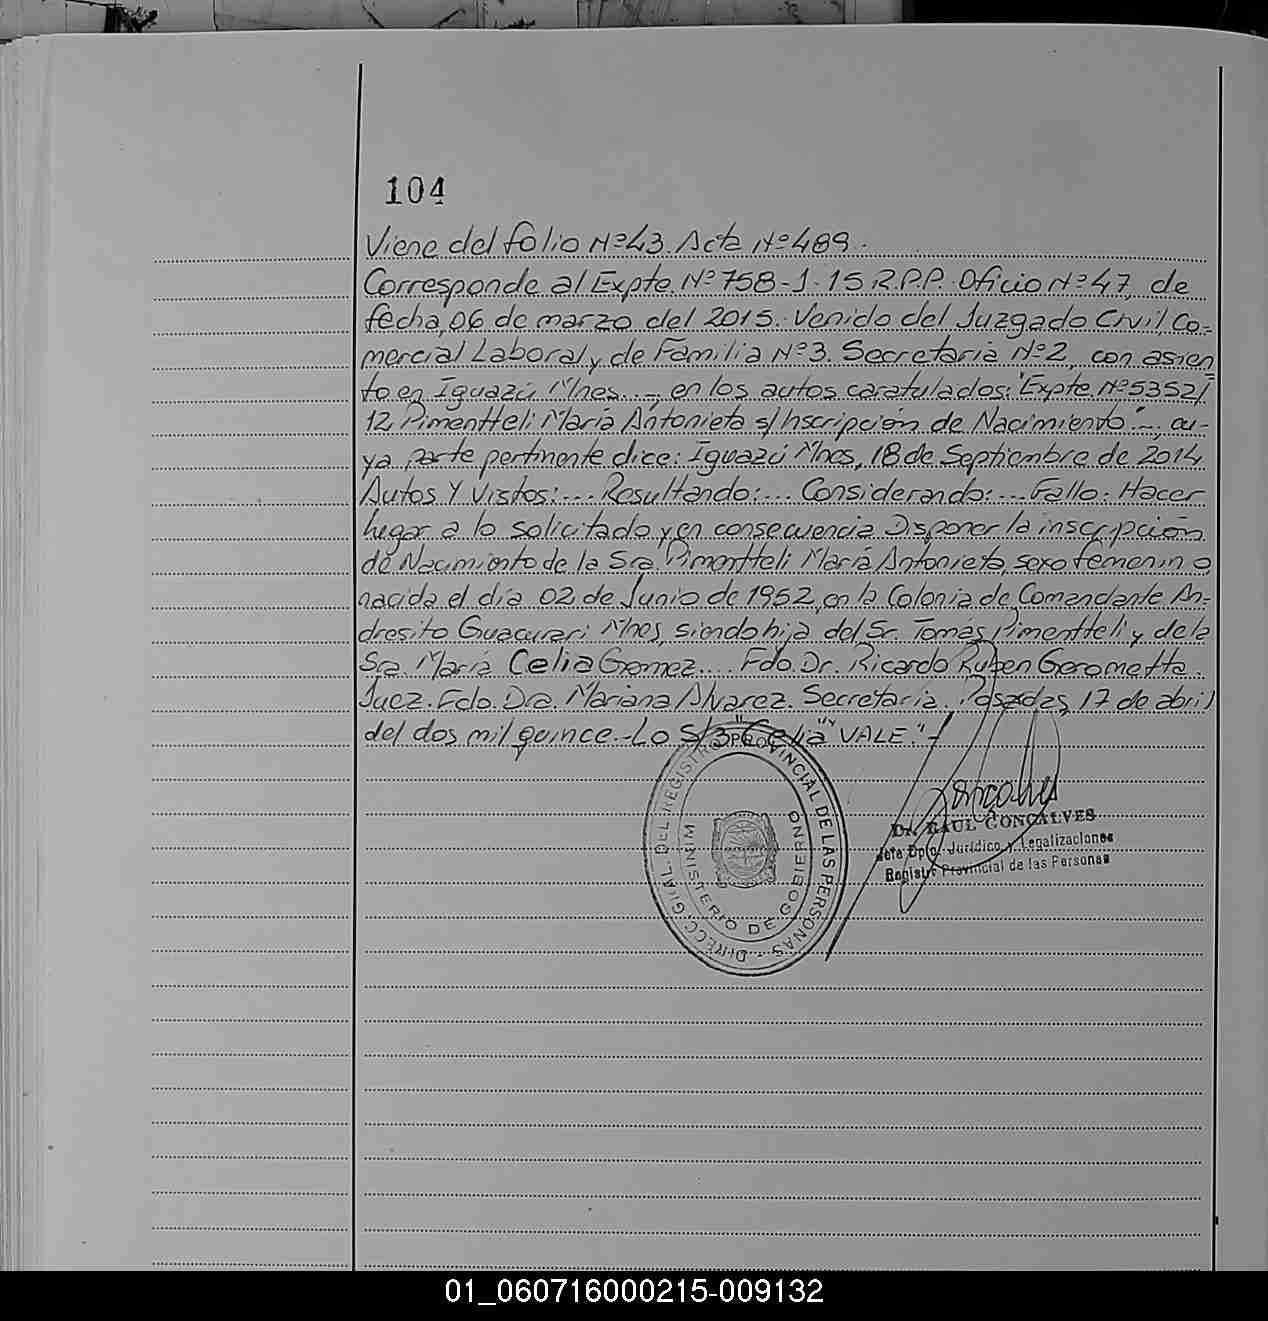 104
Viene del folio Nº43. Acta Nº489.
Corresponde al Expte. Nº758-J-15 R.P.P. Oficio Nº47, de
fecha, 06 de marzo del 2015. Venido del Juzgado Civil Co-
mercial Laboral y de Familia Nº3. Secretaria Nº2, con asien
to en Iguazú Mnes...-, en los autos caratulados: "Expte. Nº5352/
12, Pimentteli María Antonieta s/Inscripción de Nacimiento"-, cu-
ya parte pertinente dice: Iguazú Mnes, 18 de Septiembre de 2014
Autos Y Vistos:... Resultando:... Considerando:... Fallo: Hacer
lugar a lo solicitado y en consecuencia Disponer la inscripción
de Nacimiento de la Sra. Pimentteli María Antonieta sexo femenino
nacida el día 02 de Junio de 1952, en la Colonia de Comandante An-
dresito Guacurari Mnes, siendo hija del Sr. Tomás Pimentteli y de la
Sra. María Celia Gomez.... Fdo. Dr. Ricardo Ruben Gerometta.
Juez. Fdo. Dra. Mariana Alvarez. Secretaria. Posadas, 17 de abril
del dos mil quince.-Lo S/3 "Celia" "VALE".-
DIRECC. GRAL. DEL REGISTRO PROVINCIAL DE LAS PERSONAS
MINISTERIO DE GOBIERNO
Dr. RAUL GONCALVES
Jefe Dpto. Jurídico y Legalizaciones
Registro Provincial de las Personas
01_060716000215-009132